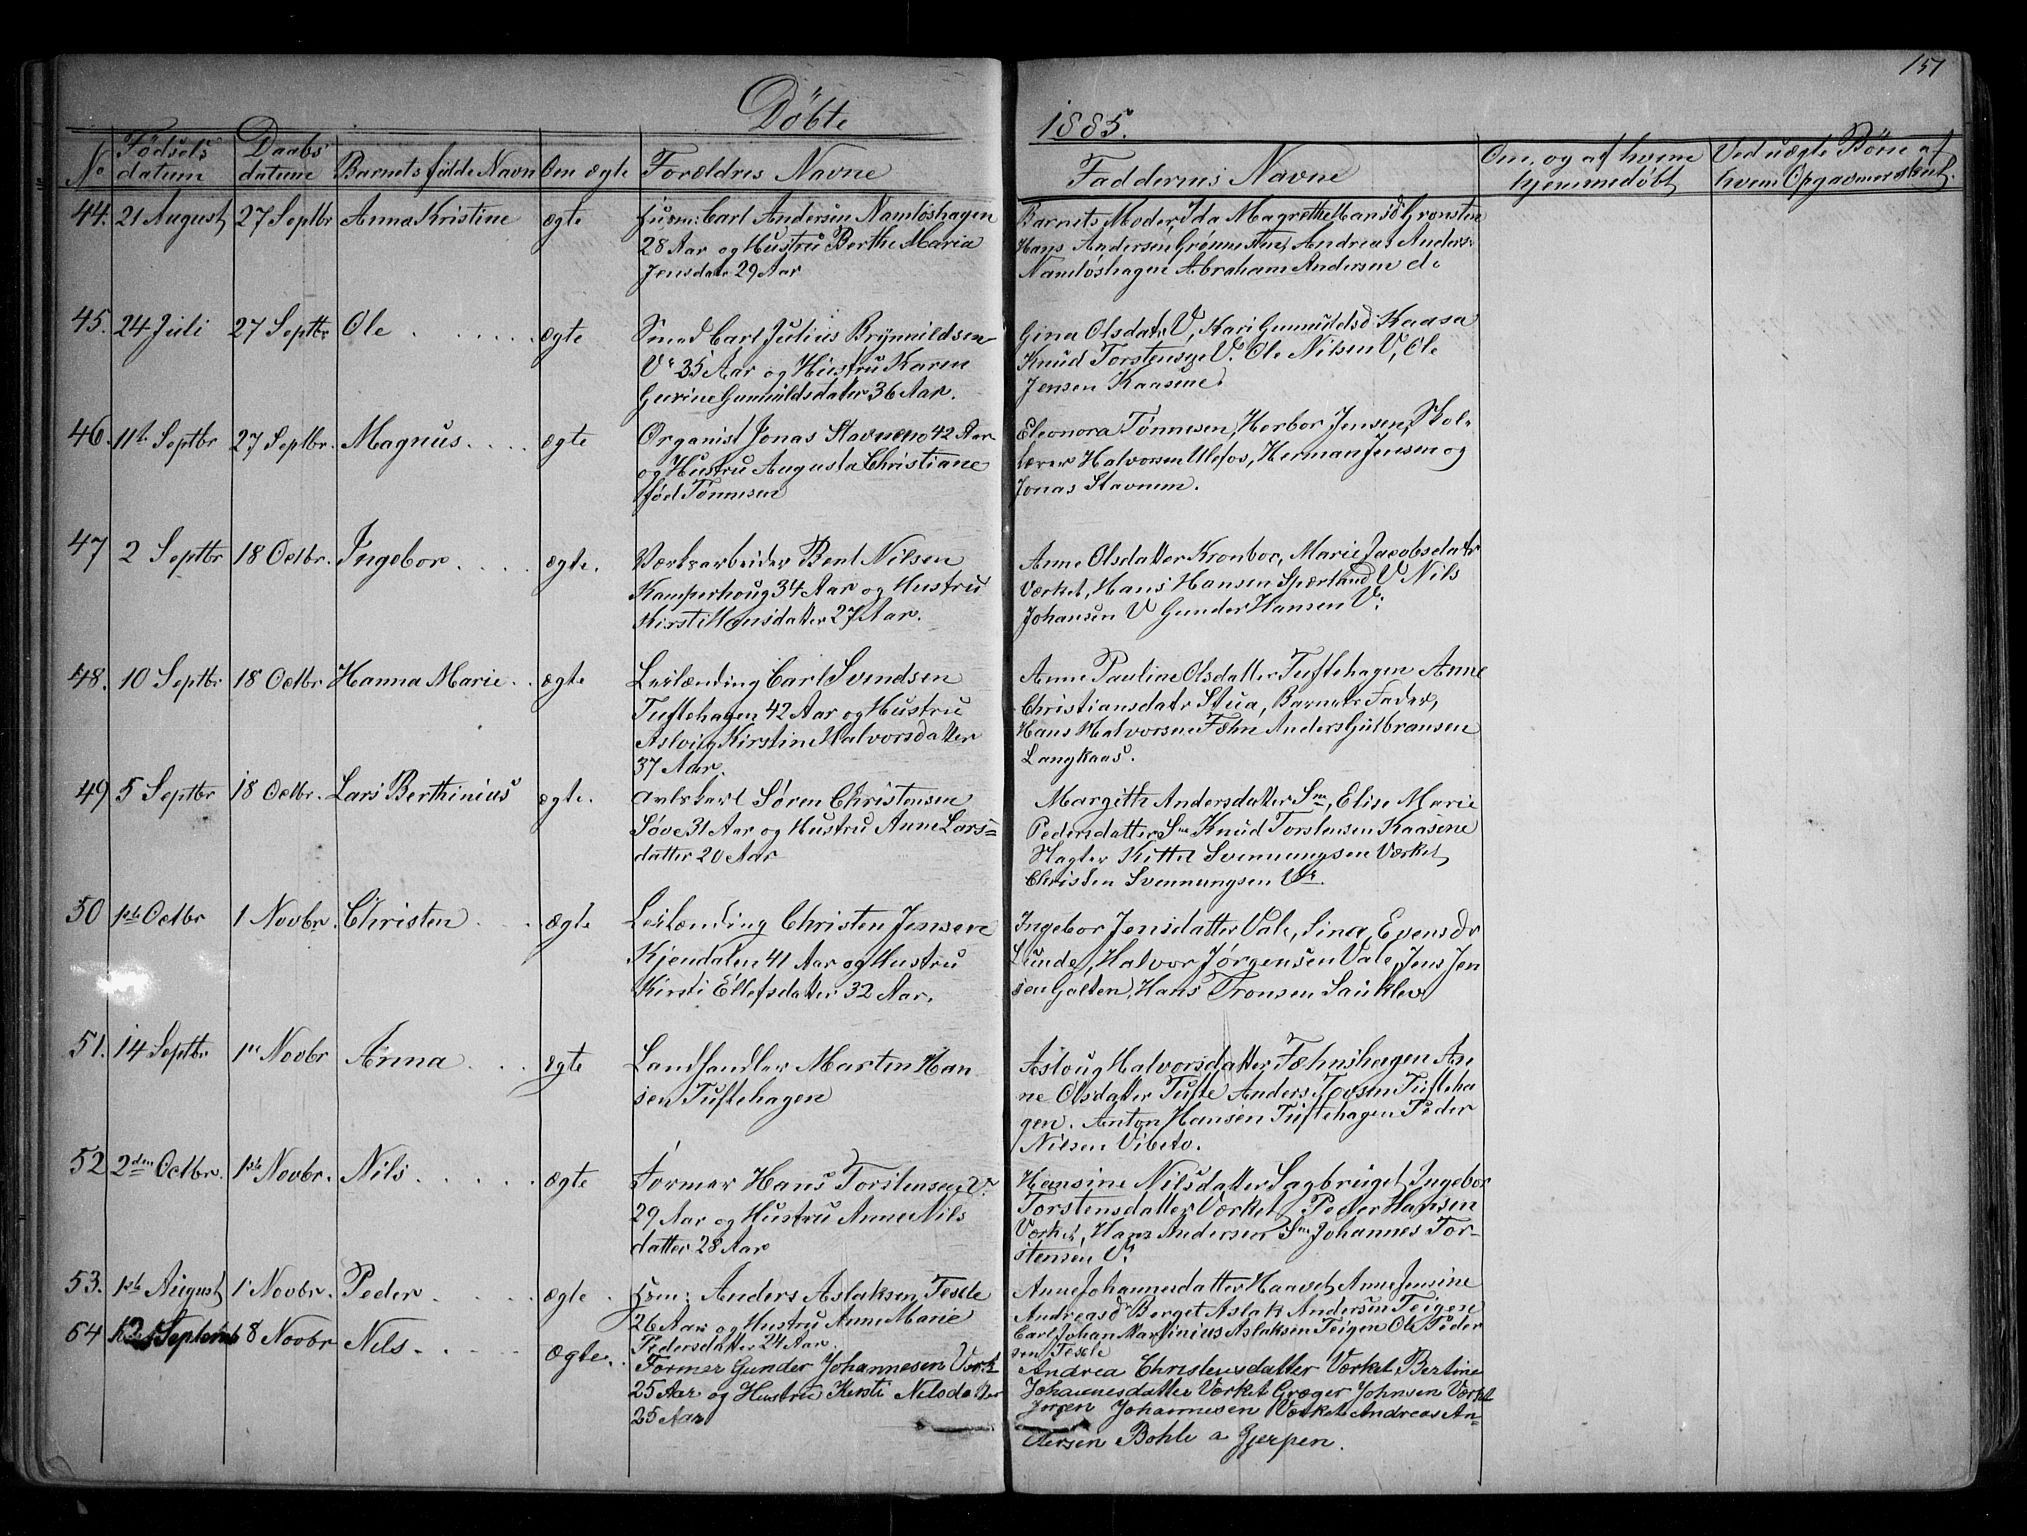 151
Døbte
1885.
No
Fødsels datum
Daabs datum
Barnets fulde Navn
Om ægte
Forældres Navne
Faddernes Navne
Om og af hvem hjemmedøbt
Ved uægte Børn af hvem Opgaven er skeet.
44. 21 August 27 Septbr Anna Kristine ægte
Husm: Carl Andersen Namløshagen
28 Aar og Hustru Berthe Maria
Jensdatr 29 Aar
Barnets Moder, Ida Magrethe Hansd Grønsten
Hans Andersen Grønnsten, Andreas Anders:
Namløshagen Abraham Andersen do
45. 24 Juli 27 Septbr Ole ægte
Smed Carl Julius Brynnildsen
V. 35 Aar og Hustru Karen
Gurine Gunnuldsdatter 36 Aar.
Gina Olsdatr V, Kari Gunnuldsd: Kaasa
Knud Torstensen V. Ole Nilsen V, Ole
Jensen Kaasene.
46. 11te Septbr 27 Septbr. Magnus ægte
Organist Jonas Stavnem 42 Aar
og Hustru Augusta Christiane
fød Tønnesen
Eleonora Tønnesen, Herbor Jensen, Skol-
lærer Halvorsen Ulefos, Herman Jensen og
Jonas Stavnem.
47 2 Septbr 18 Octbr. Ingebor ægte.
Værksarbeider Bent Nilsen
Kamperhoug 34 Aar og Hustru
Kirsti Hansdatter 27 Aar.
Anne Olsdatter Kronbor, Marie Jacobsdatr
Værket, Hans Hansen Spærland V Nils
Johansen V Gunder Hansen V:
48. 10 Septbr 18 Octbr Hanna Marie ægte
Leilænding Carl Svendsen
Tuftehagen 42 Aar og Hustru
Aslvig Kirstine Halvorsdatter
37 Aar.
Anne Pauline Olsdatter Tuftehagen Anne
Christiansdatr Stua, Barnets Fader,
Hans Halvorsen Fæhn Anders Gulbransen
Langkaas.
49 5 Septbr 18 Octbr. Lars Berthinius ægte.
Avlskarl Søren Christensen
Søve 31 Aar og Hustru Anne Lars-
datter 20 Aar
Margith Andersdatter Sve, Elise Marie
Pedersdatter Sve Knud Torstensen Kaasene
Slagter Kittel Svennungsen Værket,
Christen Svennungsen Vk.
50 1ste Octbr 1 Novbr. Christen ægte
Leilænding Christen Jensen
Kjendalen 41 Aar og Hustru
Kirsti Ellefsdatter 32 Aar.
Ingebor Jensdatter Vale, Sina, Evensdr
Lunde, Halvor Jørgensen Vale, Jens Jen
sen Galten, Hans Tronsen Sauklev
51. 14 Septbr 1ste Novbr Anna ægte
Landhandler Marten Han
sen Tuftehagen
Asloug Halvorsdatter Fæhnshagen An
ne Olsdatter Tufte Anders Tovsen Tufteha
gen. Anton Hansen Tuftehagen Peder
Nilsen Vibeto.
52 2den Octbr. 1ste Novbr. Nils ægte
Former Hans Torstensen V.
29 Aar og Hustru Anne Nils
datter 28 Aar
Hansine Nilsdatter Sagbruget Ingebor
Torstensdatter Værket Peder Hansen
Værket, Hans Andersen Sve Johannes Tor-
stensen V.
53. 1ste August 1 Novbr. Peder ægte.
Hsm: Anders Aslaksen Tesle
26 Aar og Hustru Anne Marie
Pedersdatter 24 Aar.
Anne Johannesdatter Haavet, Anne Jensine
Andreasdr Berget Aslak Andersen Teigen
Carl Johan Martinius Aslaksen Teigen Ole Peder
sen Tesle
64 Septemb 8 Novbr Nils ægte.
Former Gunder Johannesen Værk
25 Aar og Hustru Kersti Nilsdatter
25 Aar
Andrea Christensdatter Værket Bertine
Johannesdatter Værket Greger Johnsen Værket
Jørgen Johannesen Værket Andreas An-
dersen Bohle a Gjerpen.